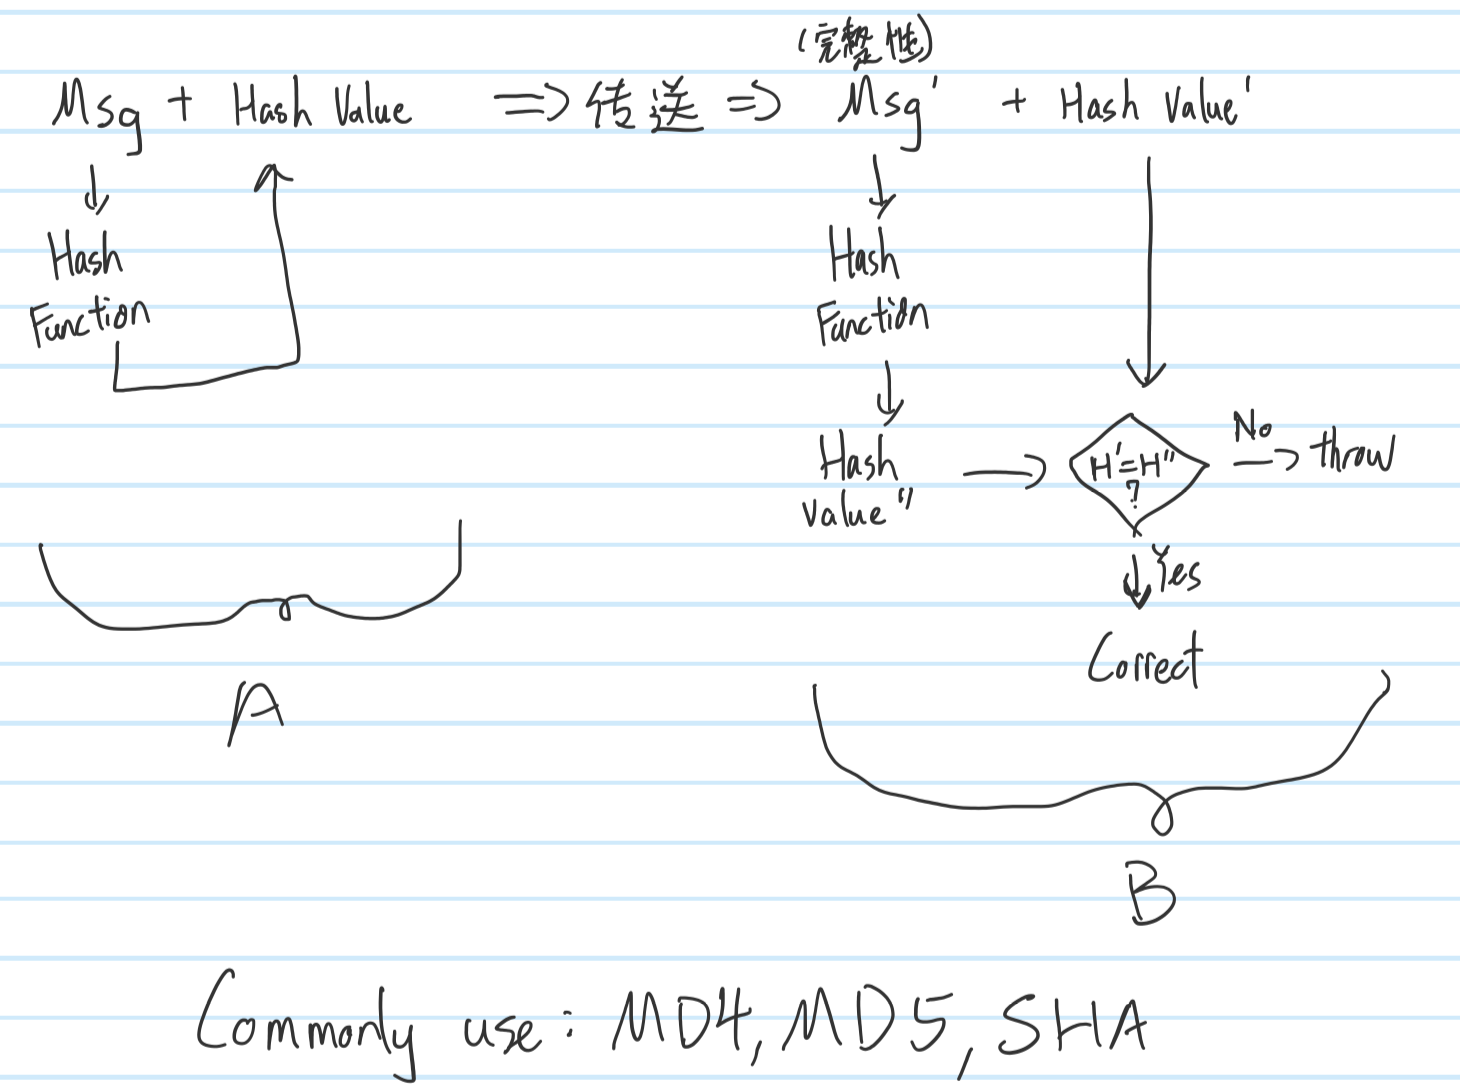 (完整性)
Msg + Hash Value ⇒ 传送 ⇒ Msg' + Hash Value'
Hash
Function
Hash
Function
Hash
Value"
H'=H"
?
No
throw
Yes
Correct
A
B
Commonly use: MD4, MD5, SHA